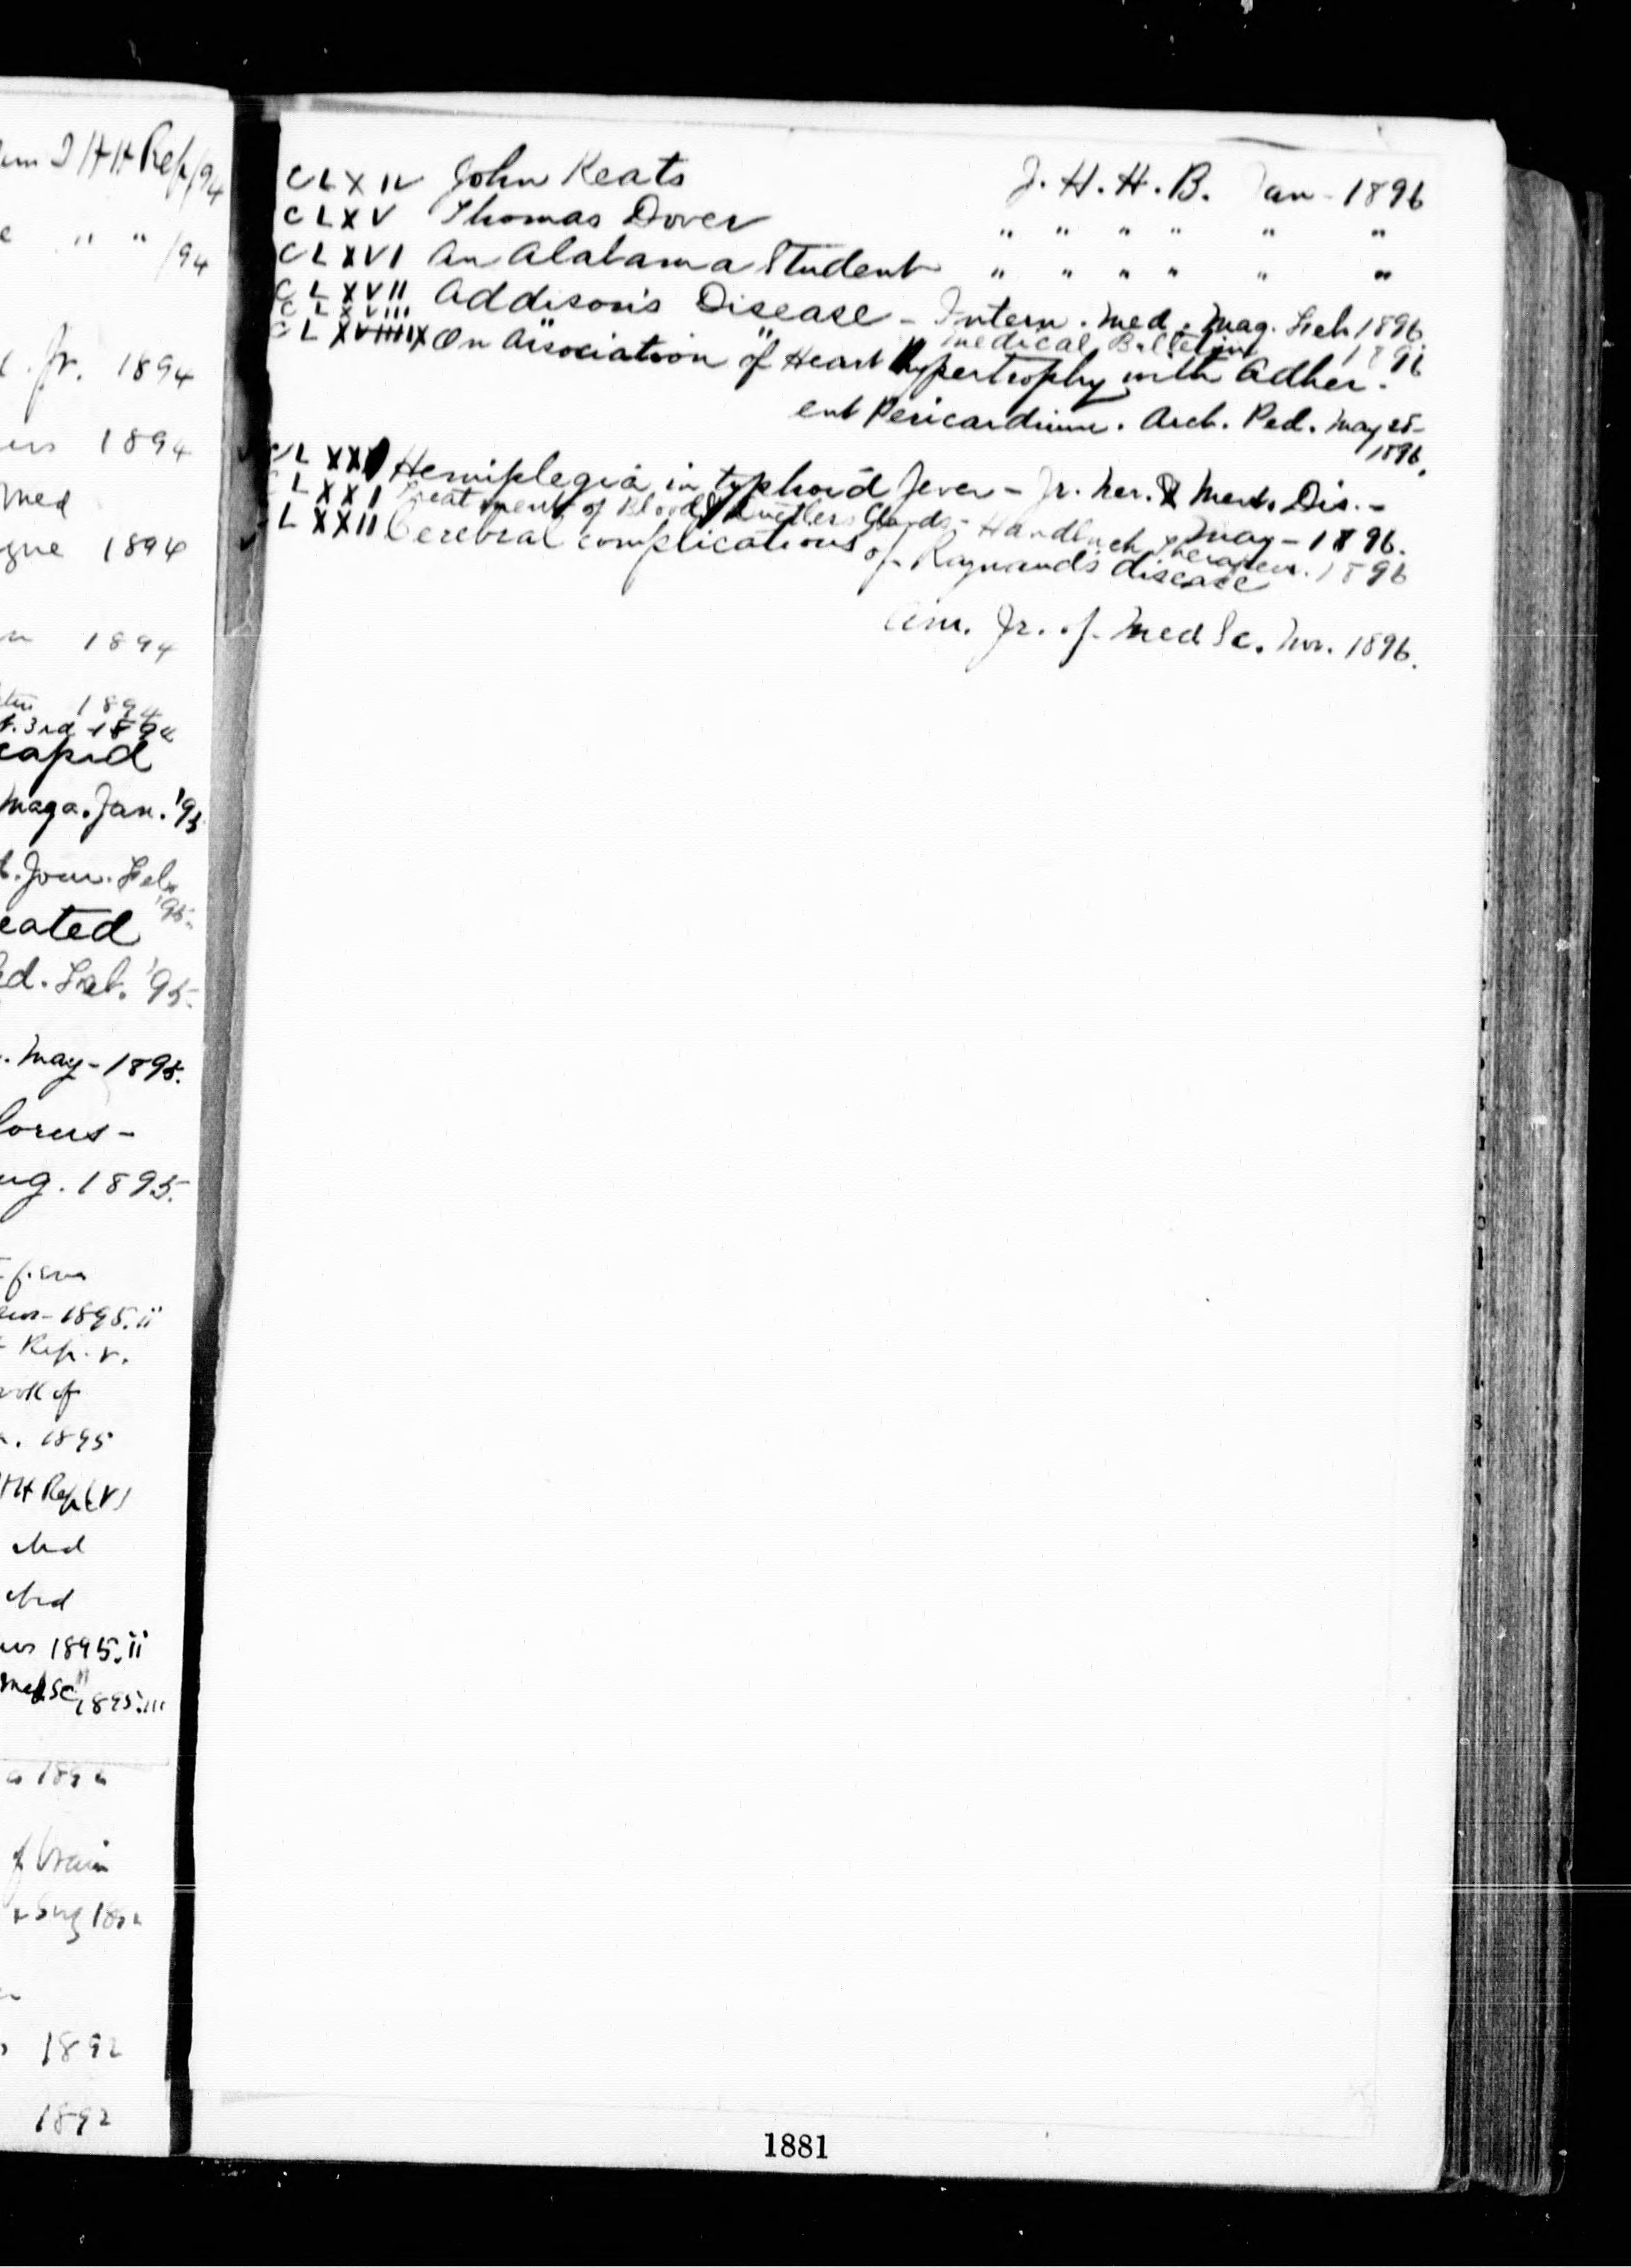 um I H H Rep/94
e " " /94
. Jr. 1894
1894
med
gue 1894
1894
1894
t. 3rd 1894
rapid
maga. Jan. '95
t. Jour. Feb.
'95.
eated
ed. Feb. '95.
. May - 1895.
lorus -
ug. 1895.
1895. ii
Rep. v.
of
. 1895
HH Rep (V)
1895. ii
med Sc 1895. iii
of brain
1892
1892
CLXIV John Keats J. H. H. B. Jan - 1896
CLXV Thomas Dover " " " " " "
CLXVI An Alabama Student " " " " " "
CLXVII Addison's Disease - Intern. Med. Mag. Feb 1896.
CLXVIII " " Medical Bulletin 1896
CLXIX On Association of Heart Hypertrophy with Adher-
ent Pericardium. Arch. Ped. May 25-
1896.
CLXX Hemiplegia in typhoid fever - Jr. Ner. & Ment. Dis. -
May - 1896.
CLXXI Treatment of Blood & Ductless Glands - Handbuch Therapeu. 1896
LXXII Cerebral complications of Raynaud's disease
Am. Jr. of Med Sc. Nov. 1896.
1881